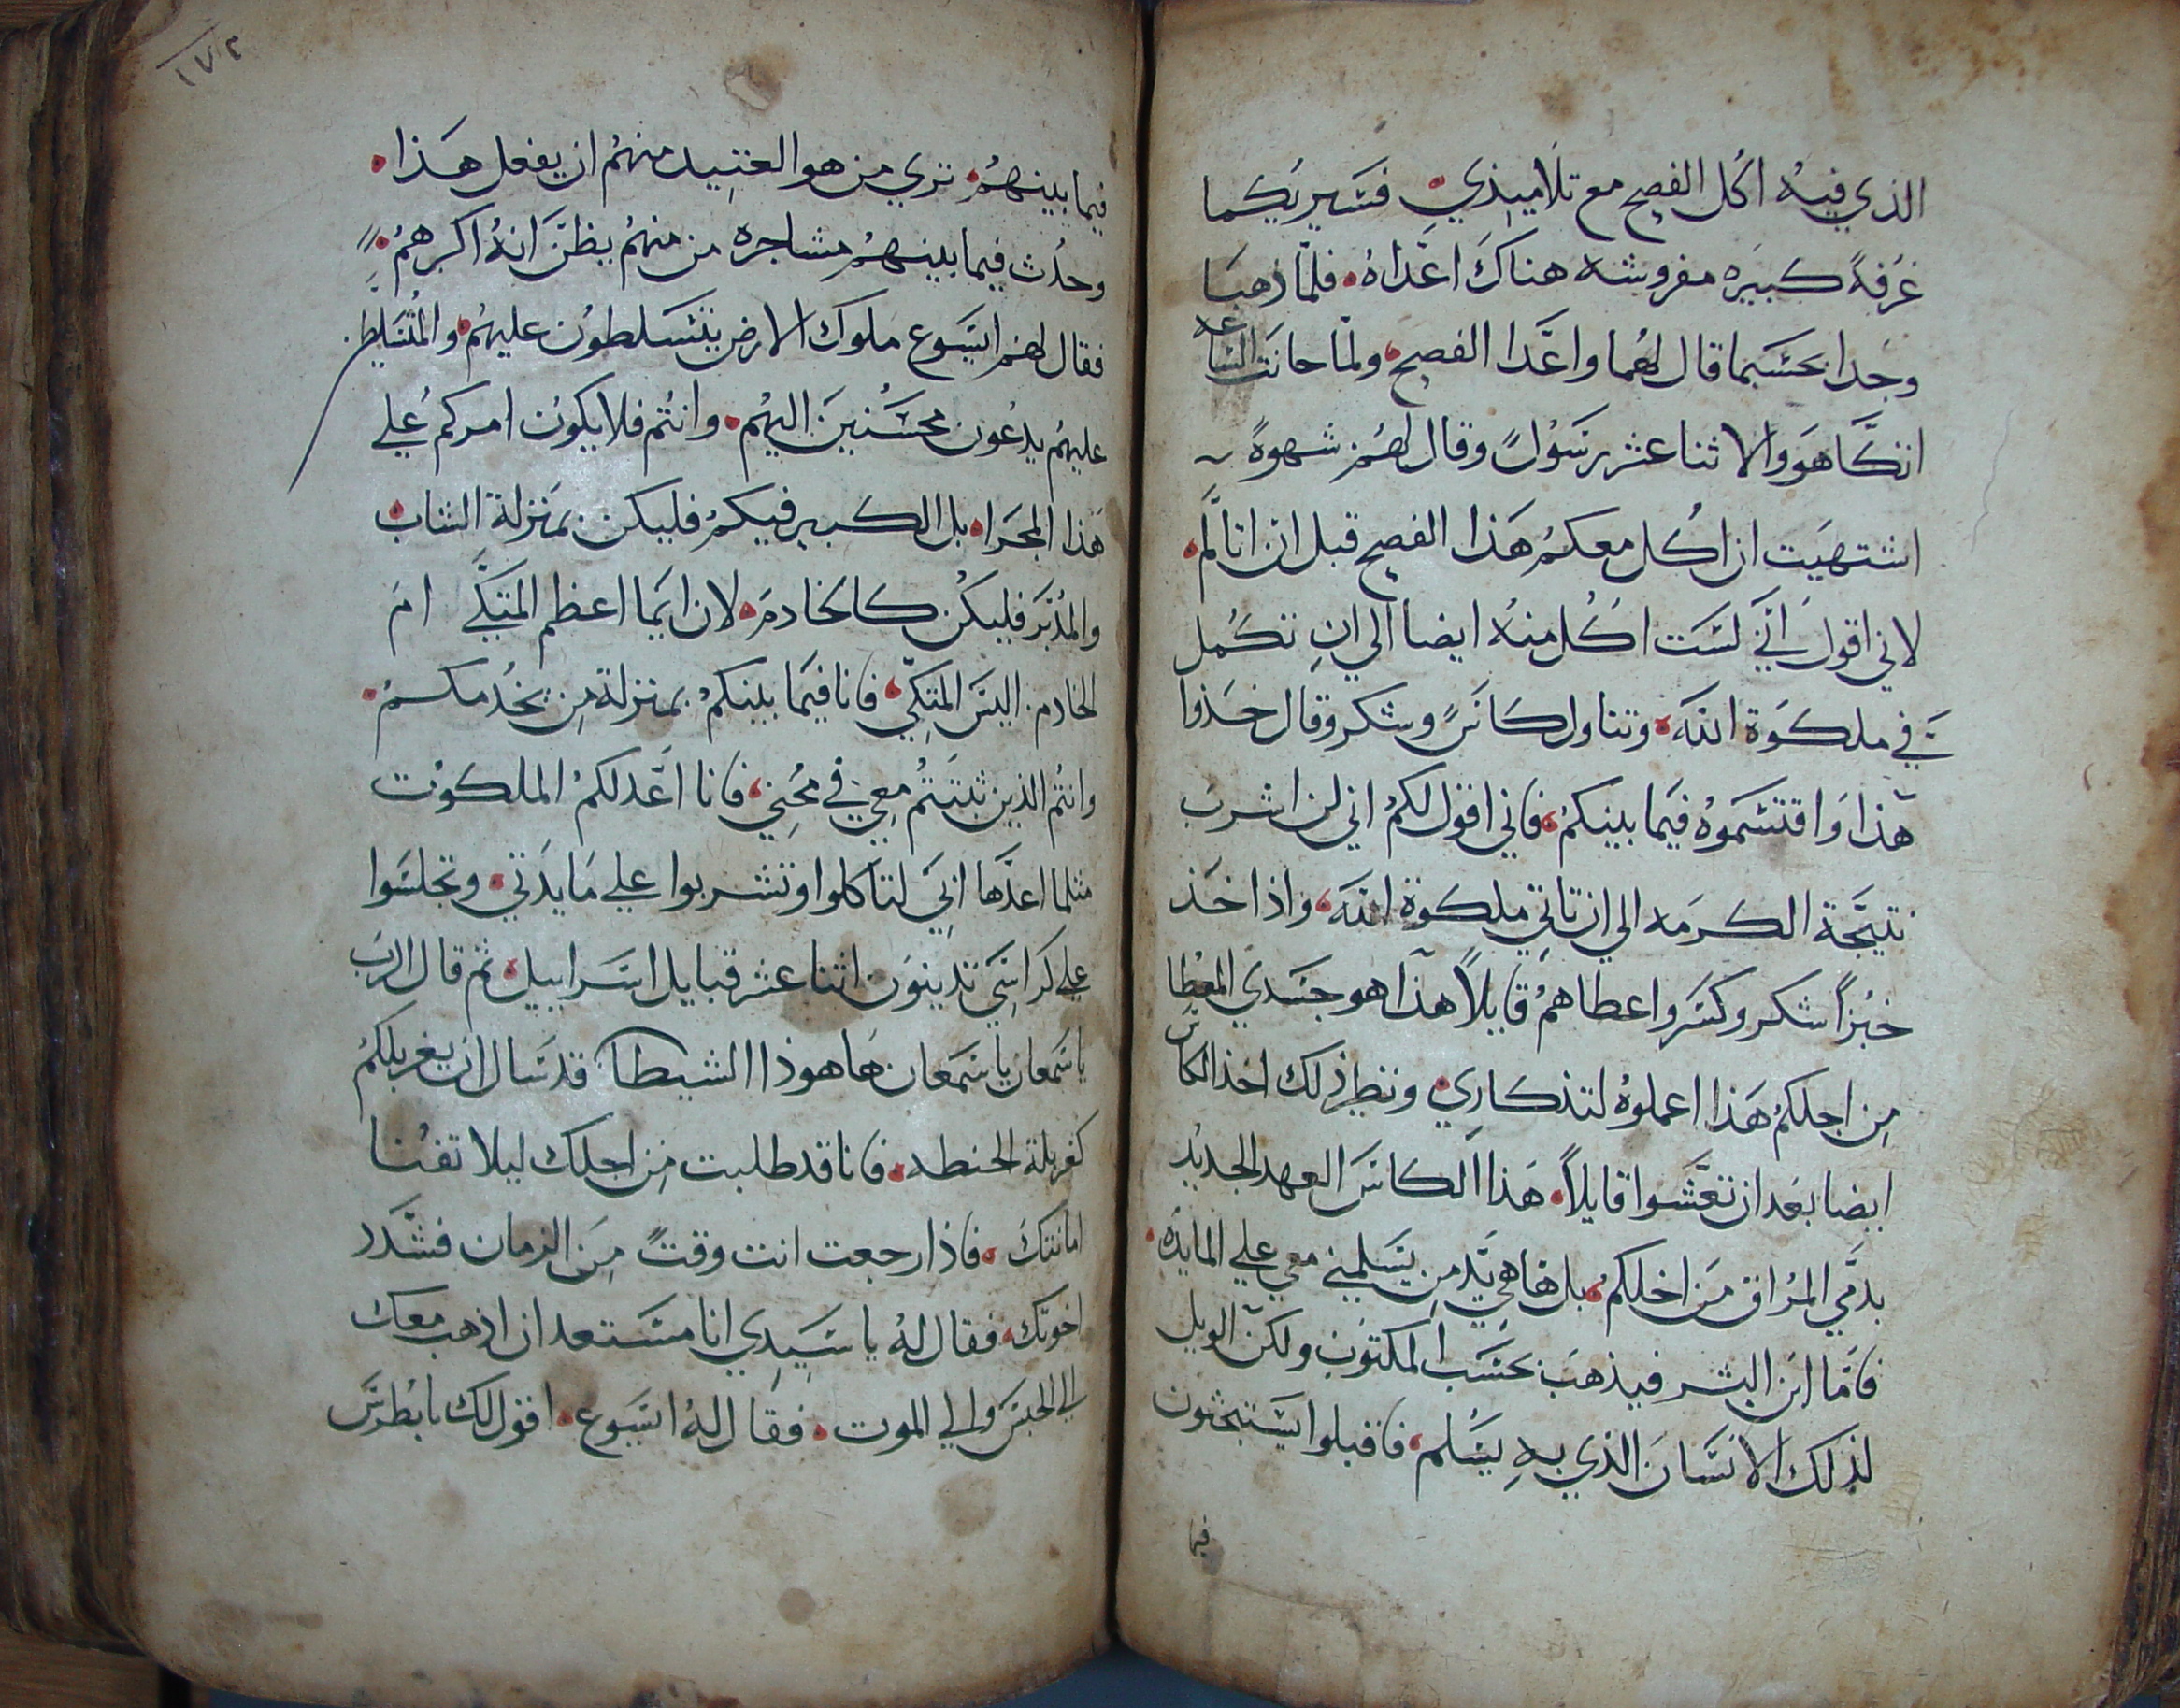 الذي فيه اكل الفصح مع تلاميذي. فسيريكما
غرفةً كبيره مفروشه هناك اعداه. فلما ذهبا
وجدا بحسبما قال لهما واعدا الفصح. ولما حانت الساعه
اتكا هو والاثنا عشر رسولً وقال لهم شهوةً
اشتهيت ان اكل معكم هذا الفصح قبل ان اتالم.
لاني اقول اني لست اكل منه ايضا الي ان تكمل
في ملكوة الله. وتناول كاسً وشكر وقال خذوا
هذا واقتسموه فيما بينكم. فاني اقول لكم اني لن اشرب
نتيجة الكرمه الي ان تاتي ملكوة الله. واذ اخذ
خبزاً شكر وكسر واعطاهم قايلاً هذا هو جسدي المعطا
من اجلكم هذا اعملوه لتذكاري. ونظير ذلك اخذ الكاس
ايضا بعد ان تعشوا قايلاً. هذا الكاس العهد الجديد
بدمي المراق من اجلكم. بل ها هي يد من يسلمني معي علي المايده.
فاما ابن البشر فيذهب بحسب المكتوب ولكن الويل
لذلك الانسان الذي به يسلم. فاقبلوا يستبحثون
فيما
١٧٢
فيما بينهم. تري من هو العتيد منهم ان يفعل هذا.
وحدث فيما بينهم مشاجره من منهم يظن انه اكبرهم.
فقال لهم ايسوع ملوك الارض يتسلطون عليهم. والمتسليطين
عليهم يدعون محسنين اليهم. وانتم فلا يكون امركم علي
هذا المجرا. بل الكبير فيكم فليكن بمنزلة الشاب.
والمدبر فليكن كالخادم. لان ايما اعظم المتكي ام
الخادم. اليس المتكي. فانا فيما بينكم بمنزلة من يخدمكم.
وانتم الذين ثبتتم معي في محني. فانا اعد لكم الملكوت
مثلما اعدها ابي لتاكلوا وتشربوا علي مايدتي. وتجلسوا
علي كراسي تدينون اثنا عشر قبايل اسراييل. ثم قال الرب
ياسمعان ياسمعان هاهوذا الشيطان قد سال ان يغربلكم
كغربلة الحنطه. فانا قد طلبت من اجلك ليلا تفنا
امانتك. فاذا رجعت انت وقتً من الزمان فشدد
اخوتك. فقال له ياسيدي انا مستعد ان اذهب معك
الي الحبس والي الموت. فقال له ايسوع. اقول لك يابطرس